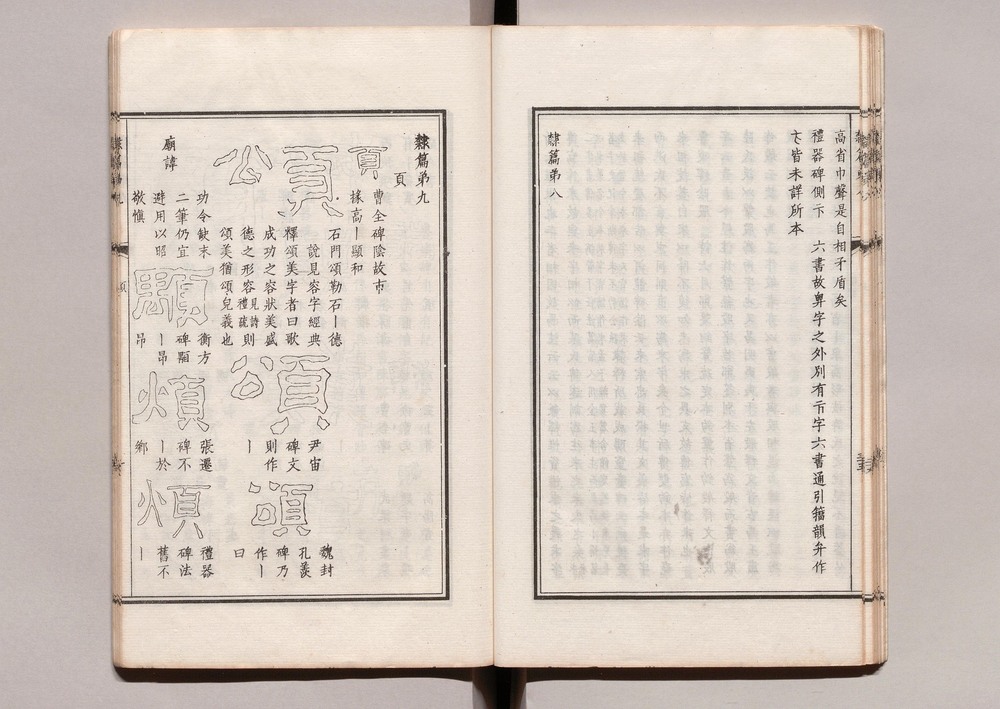 高省巾聲是自相矛盾矣
禮器碑側下 六書故弁字之外別有亓字六書通引籀韻弁作
皆未詳所本
隸篇第八
隸篇第九
頁
頁
曹全碑陰故市
掾高丨顯和
頌
石門頌勒石丨德
說見容字經典
釋頌美字者曰歌
成功之容狀美盛
德之形容見詩禮疏則
頌美猶頌皃義也
頌
尹宙
碑文
則作
丨
頌
魏封
孔羨
碑乃
作丨
曰
廟諱
功令缺末
二筆仍宜
避用以昭
敬慎
顒
衡方
碑顒
丨昂
昂
煩
張遷
碑不
丨於
鄉
煩
禮器
碑法
舊不
丨